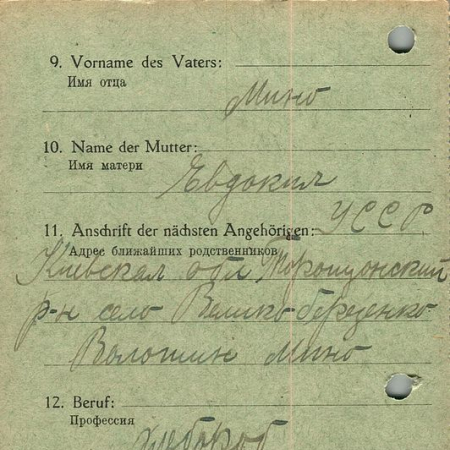 9. Vorname des Vaters:
Имя отца
Мино
10. Name der Mutter:
Имя матери
Евдокия
11. Anschrift der nächsten Angehörigen: УССР,
Адрес ближайших родственников
Киевская обл
р-н село Велико-березенко
Волошин Мино
12. Beruf:
Профессия
хлебороб